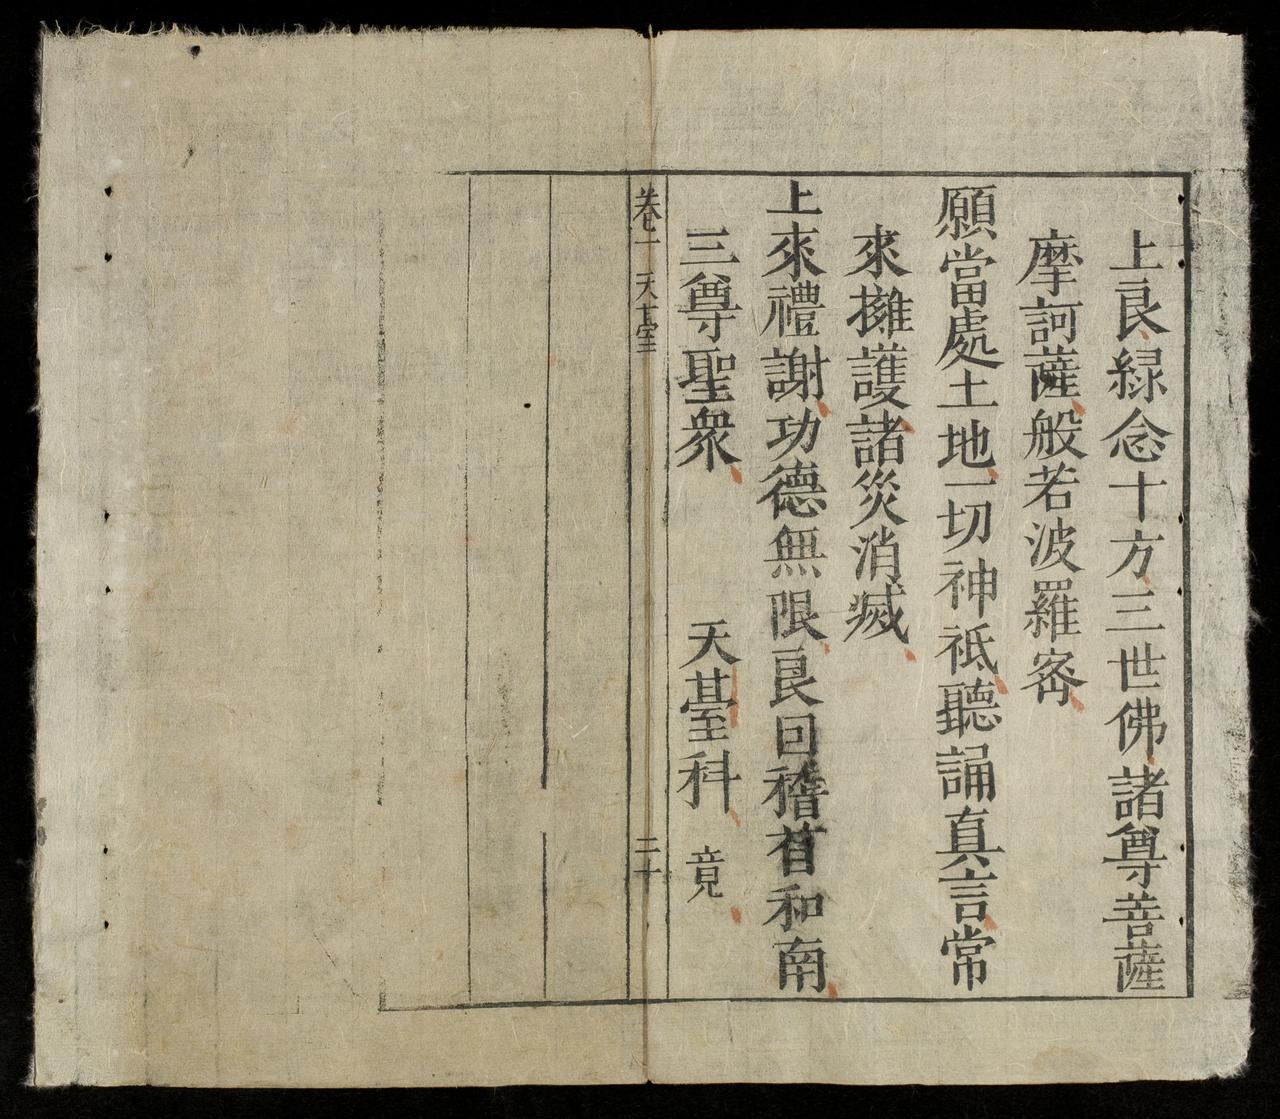 上良緣念十方三世佛諸尊菩薩
摩訶薩般若波羅宻
願當處土地一切神祗聽誦真言常
來擁護諸災消滅
上來禮謝功德無限良回稽首和南
三尊聖衆 天䑓科 竟
卷一 天䑓 三十